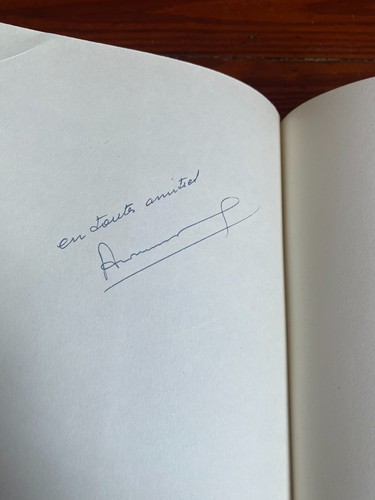 en toute amitié